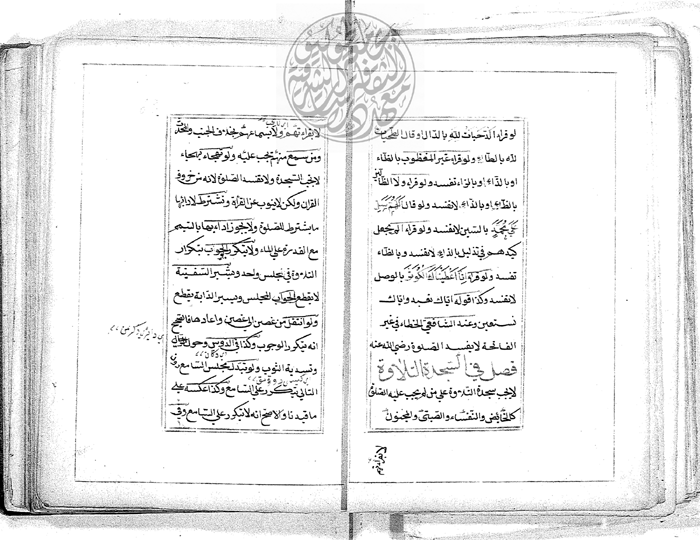 لو قراء الذحيات لله بالذال او قال التحيات
لله بالطاء ولو قراء غير المغظوب بالظاء
او بالذاء او بالزاء تفسد ولو قراء ولا الظالين
بالظاء او بالذاء لا تفسد ولو قال اللهم سل
على محمد بالسين لا تفسد ولو قراء الم يجعل
كيدهم في تذليل بالذاء لا تفسد وبالظاء
تفسد ولو قراء انا اعطيناك الكوثر بالوصل
لا تفسد وكذا قوله اياك نعبد واياك
نستعين وعند الشافعي الخطاء في غير
الفاتحة لا يفسد الصلوة رضي الله عنه
فصل في السجدة التلاوة
لا يجب سجدة التلاوة على من لم يجب عليه الصلوة
كالحائض والنفساء والصبي والمجنون
لا بقراءتهم
لا بقراءتهم ولا بسماعهم بخلاف الجنب والمحدث
ومن سمع منهم يجب عليه ولو تهجاء بهجاء
لا يجب السجدة ولا تفسد الصلوة لانه من حروف
القران ولكن لا ينوب عن القراة وتشترط لادائها
ما يشترط للصلوة ولا يجوز اداءها بالتيمم
مع القدرة على الماء ولا يتكرر الوجوب بتكرار
التلاوة في مجلس واحد وبسير السفينة
لا يقطع المجلس وبسير الدابة يقطع
ولو انتقل من غصن الى غصن واعادها فالصحيح
انه يتكرر الوجوب وكذا في الدوس وحول
وتسدية الثوب ولو تبدل مجلس السامع
التالي يتكرر على السامع وكذا عكسه على
ما قيل والاصح انه لا يتكرر على السامع وفي